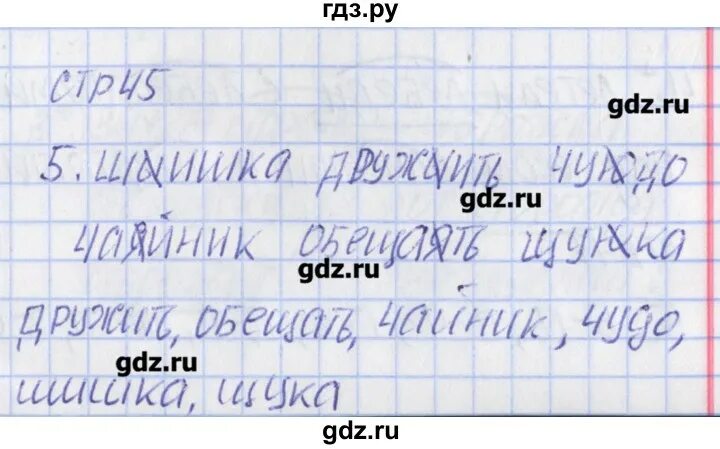 гдз.ру
стр 45
gdz.ru
5. шыишка дружыить чуюдо
gdz.ru
чаяйник обещаять щуюка
gdz.ru
дружить, обещать, чайник, чудо,
gdz.ru
шишка, щука
gdz.ru